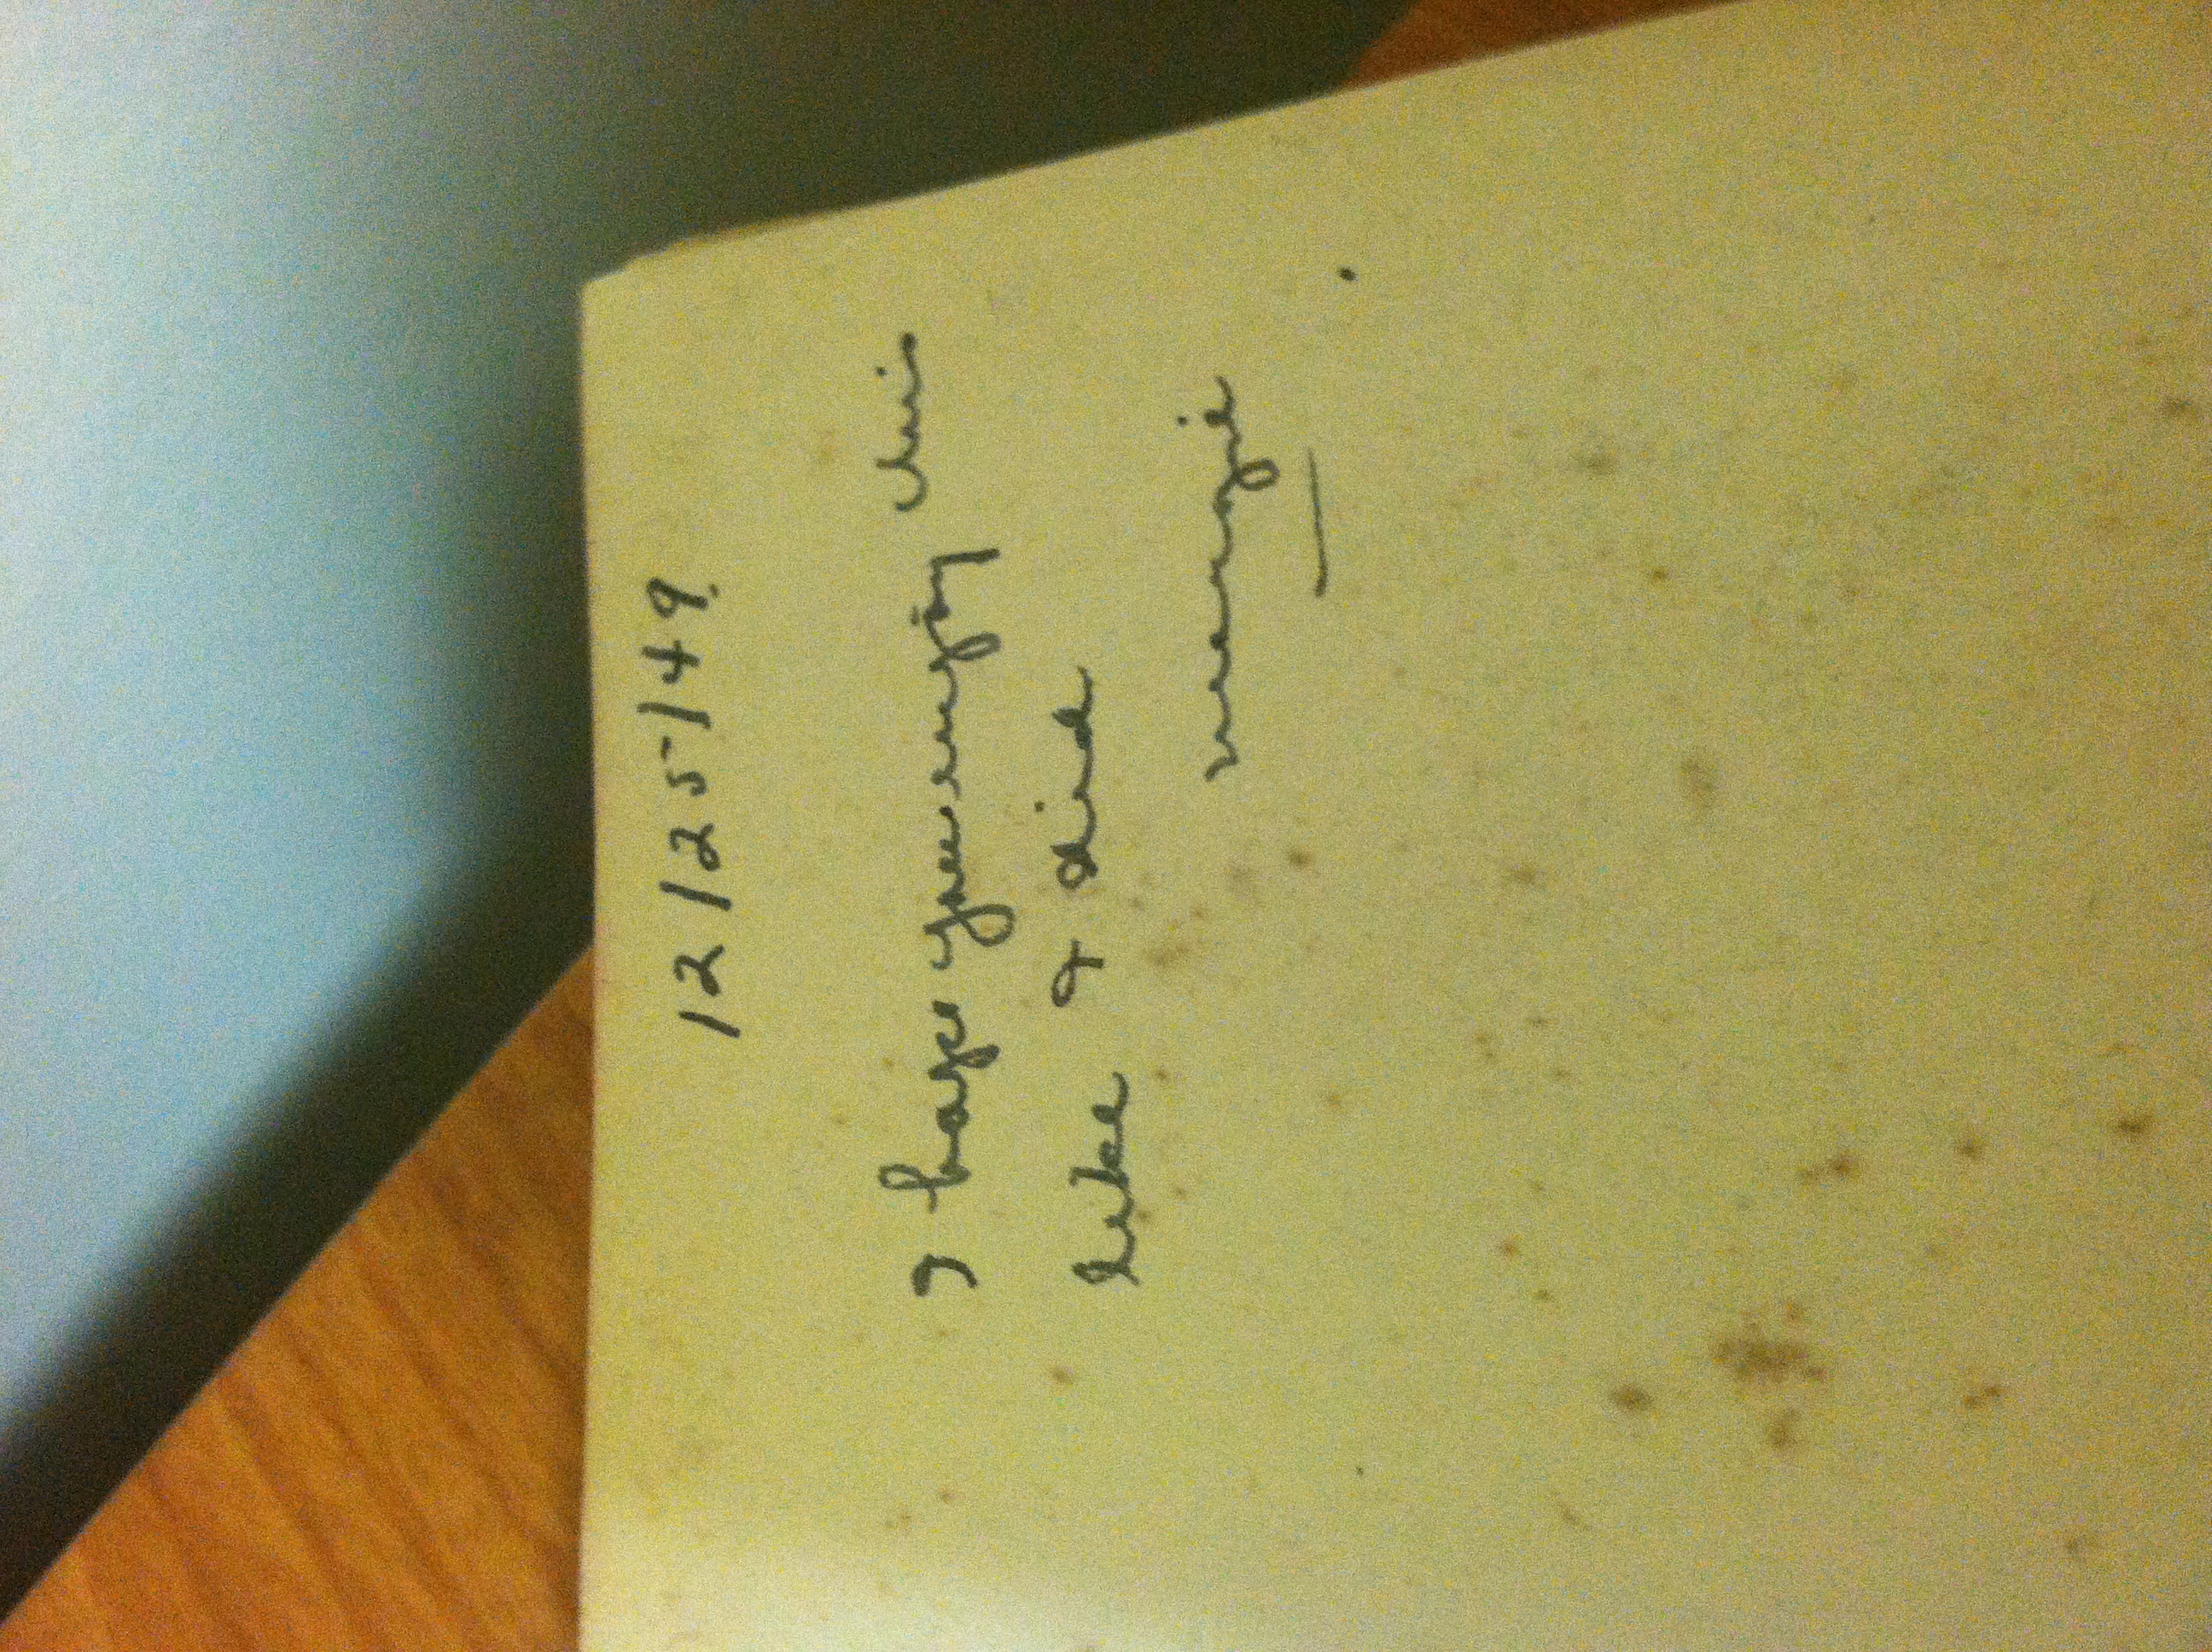 12/25/49.
I hope you enjoy this
like & did